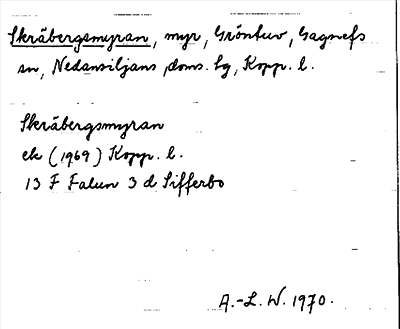 Skräbergsmyran, myr, Gröntuv, Gagnefs
sn, Nedansiljans doms. tg, Kopp. l.
Skräbergsmyran
ek (1969) Kopp. l.
13 F Falun 3 d Sifferbo
A.-L. W. 1970.